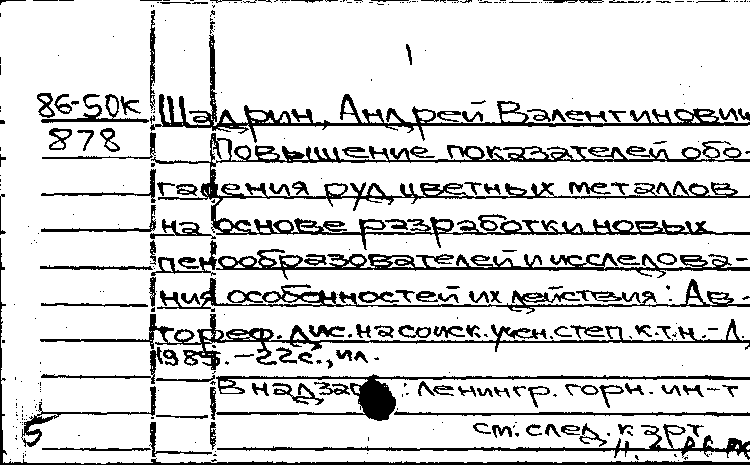 1
86-50К Шадрин, Андрей Валентинович
878 Повышение показателей обо-
гащения руд цветных металлов
на основе разработки новых
пенообразователей и исследова-
ния особенностей их действия: Ав-
тореф. дис. на соиск. учен. степ. к.т.н. - Л.,
1985. - 22с., ил.
В надзаг.: Ленингр. горн. ин-т
см. след. карт.
5